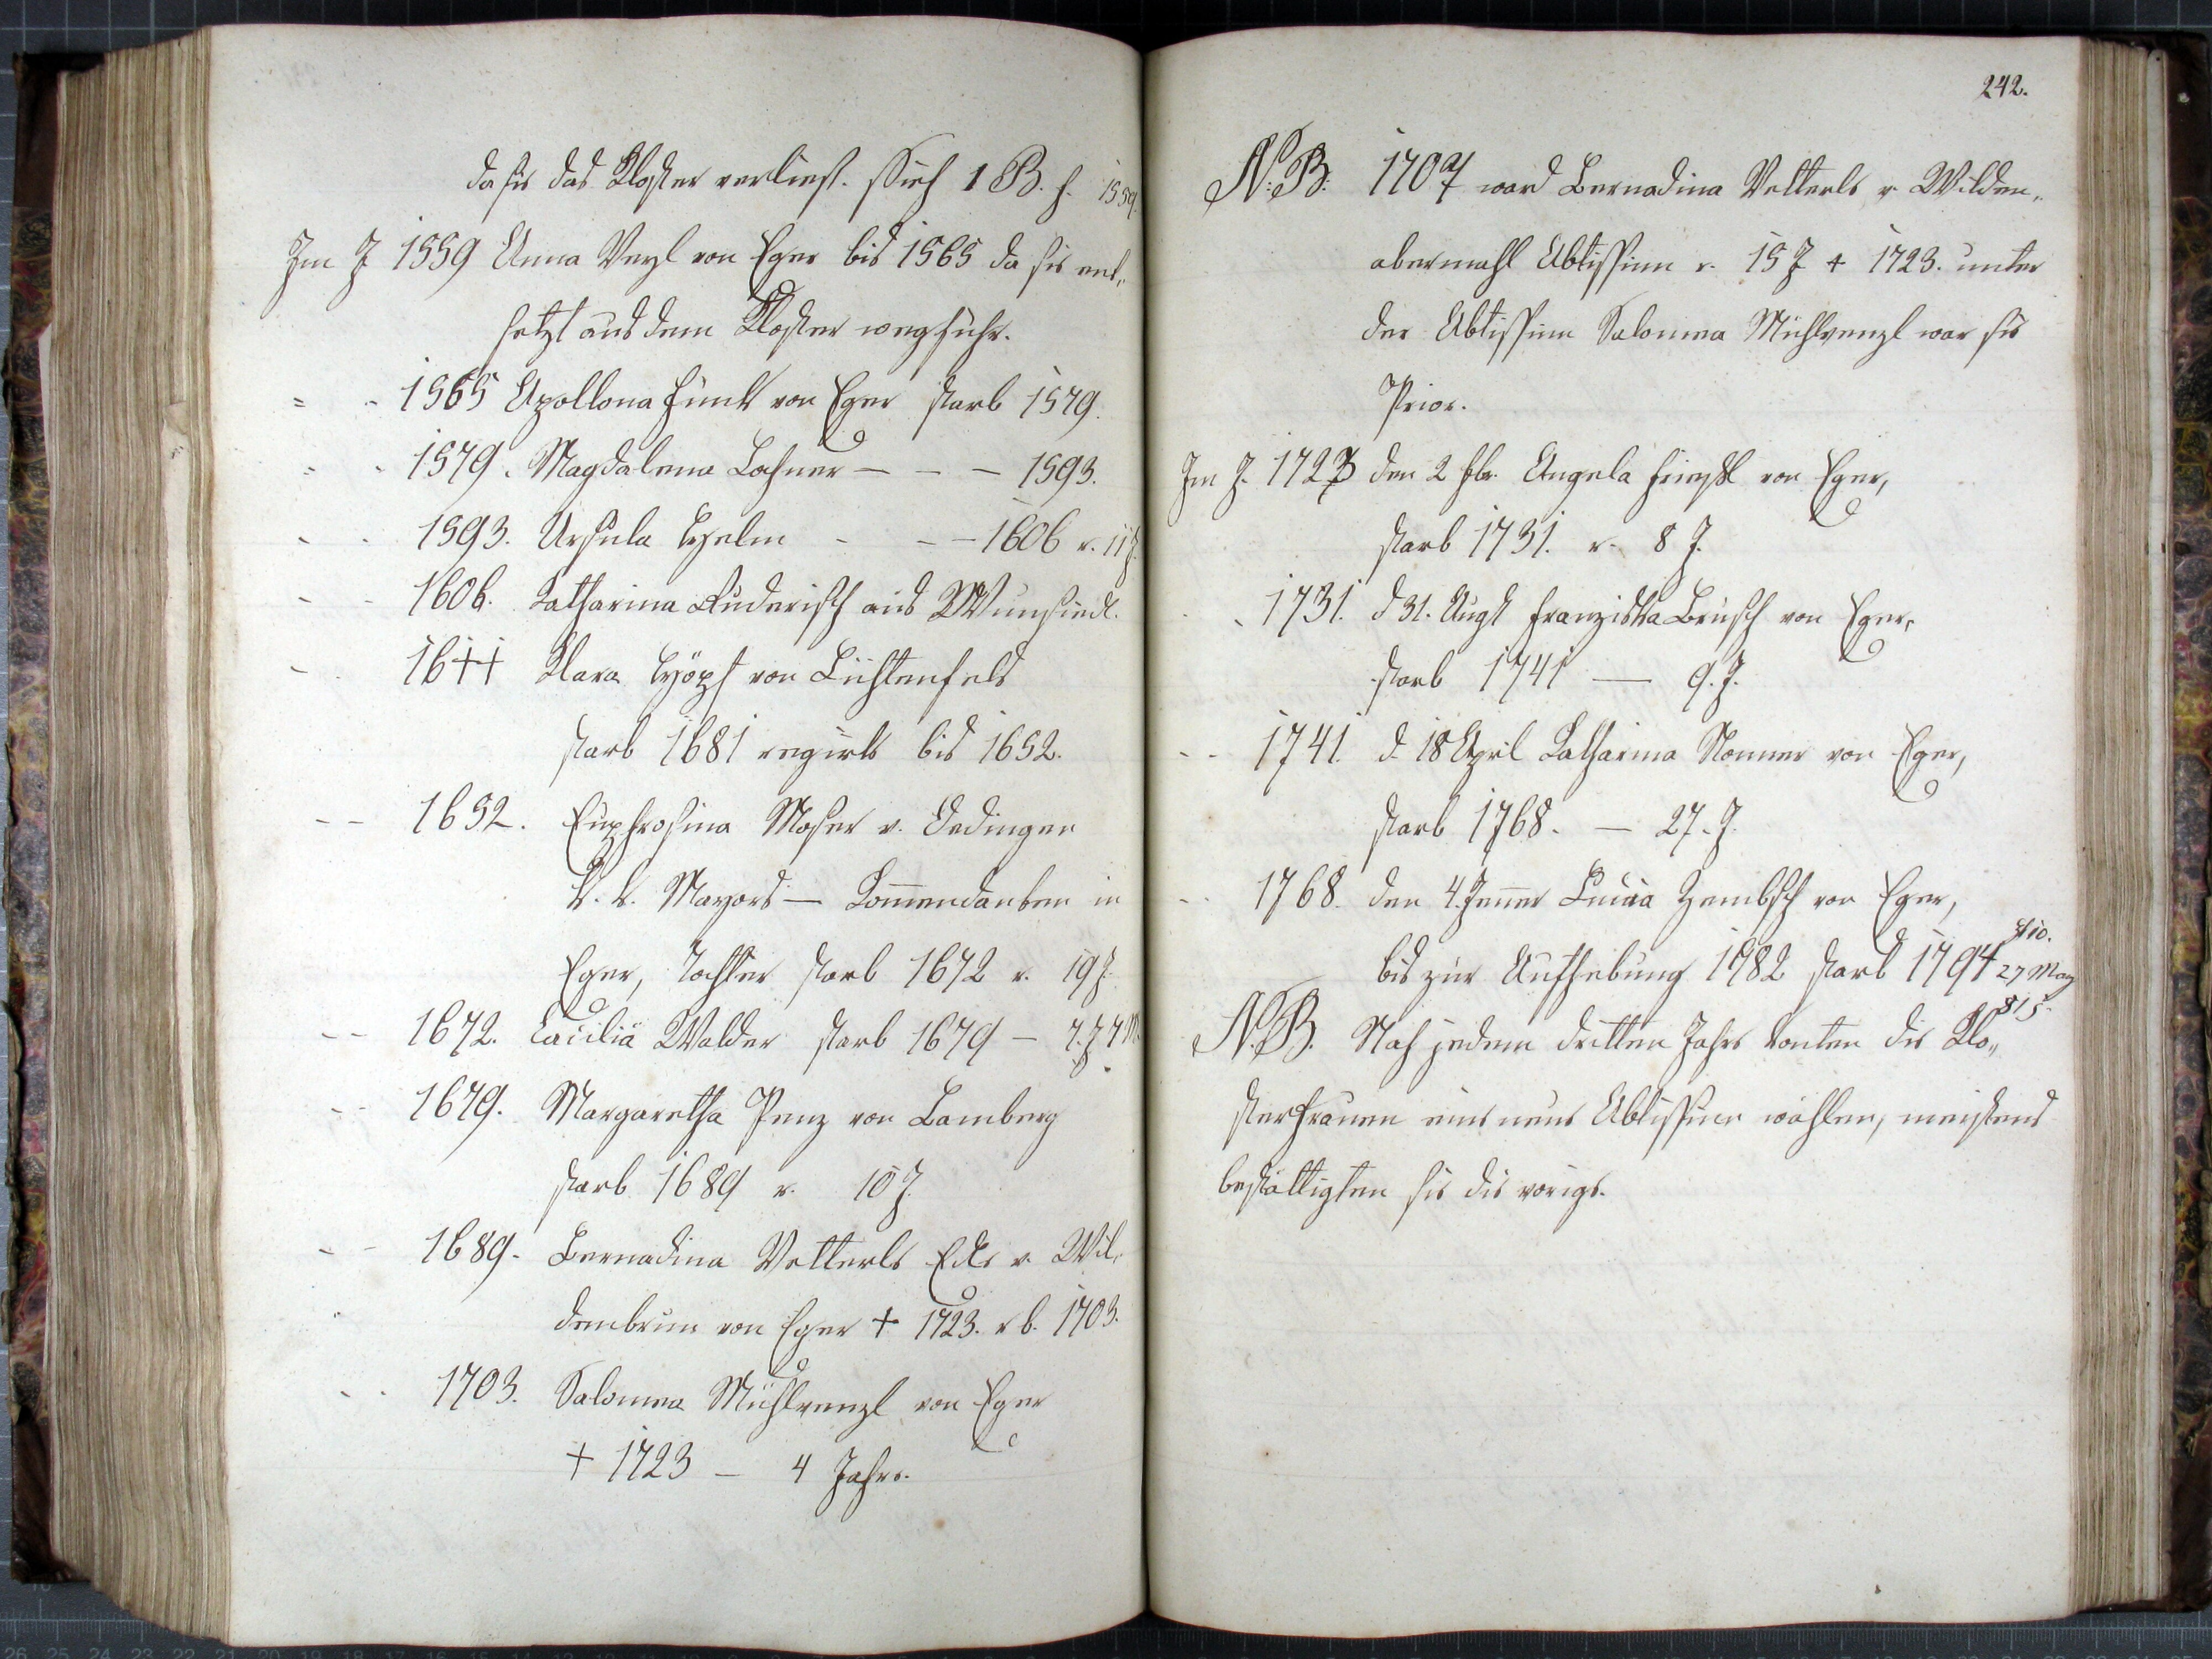 da sie das Kloster verließ. sieh 1 B. s. 1559.
Im J 1559 Anna Veyl von Eger bis 1565 da sie ent„
setzt aus dem Kloster wegfuhr.
= - 1565 Apollona Funk von Eger starb 1579.
- - 1579. Magdalena Lochner — - — 1593.
- - 1593. Ursula - - — 1606 r. 11 J.
- - 1606. Katharina Ruderisch aus Wunsiedl.
- - 16++ Klara von Lichtenfels
starb 1681 regirte bis 1652.
- - 1652. Euphrosina Moser v. Oedingen
k. k. Mayors — Kom̄endanten in
Eger, Tochter starb 1672 r. 19 J.
- - 1672. Cäcilia Walder starb 1679 — 7. J 7 M.
- - 1679. Margaretha Penz von Lamberg
starb 1689 r. 10 J.
- - 1689. Bernadina Vetterle Edle v. Wil„
denbrun von Eger + 1723. r b. 1703.
- - 1703. Salomea Mühlvenzl von Eger
+ 1723 — 4 Jahre.
242.
N:B: 1707 ward Bernadina Vetterle v. Wilden„
abermahl Abtissinn r. 15 J + 1723. unter
der Abtissinn Salomea Mühlvenzl war sie
Prior.
Im J. 1723 den 2 Angela von Eger,
starb 1731. r. 8 J.
- - 1731. d 31. Augst Franziska Brusch von Eger,
starb 1741 — 9. J.
- - 1741. d. 18 April Katharina Nonner von Eger,
starb 1768. — 27. J.
- - 1768. den 4. Jen̄er Lucia Zembsch von Eger,
bis zur Aufhebung 1782 starb 1794 27 May
815.
N.B. Nach jedem dritten Jahre konten die Klo„
sterfrauen eine neue Abtissinn wählen, meistens
bestättigten sie die vorige.